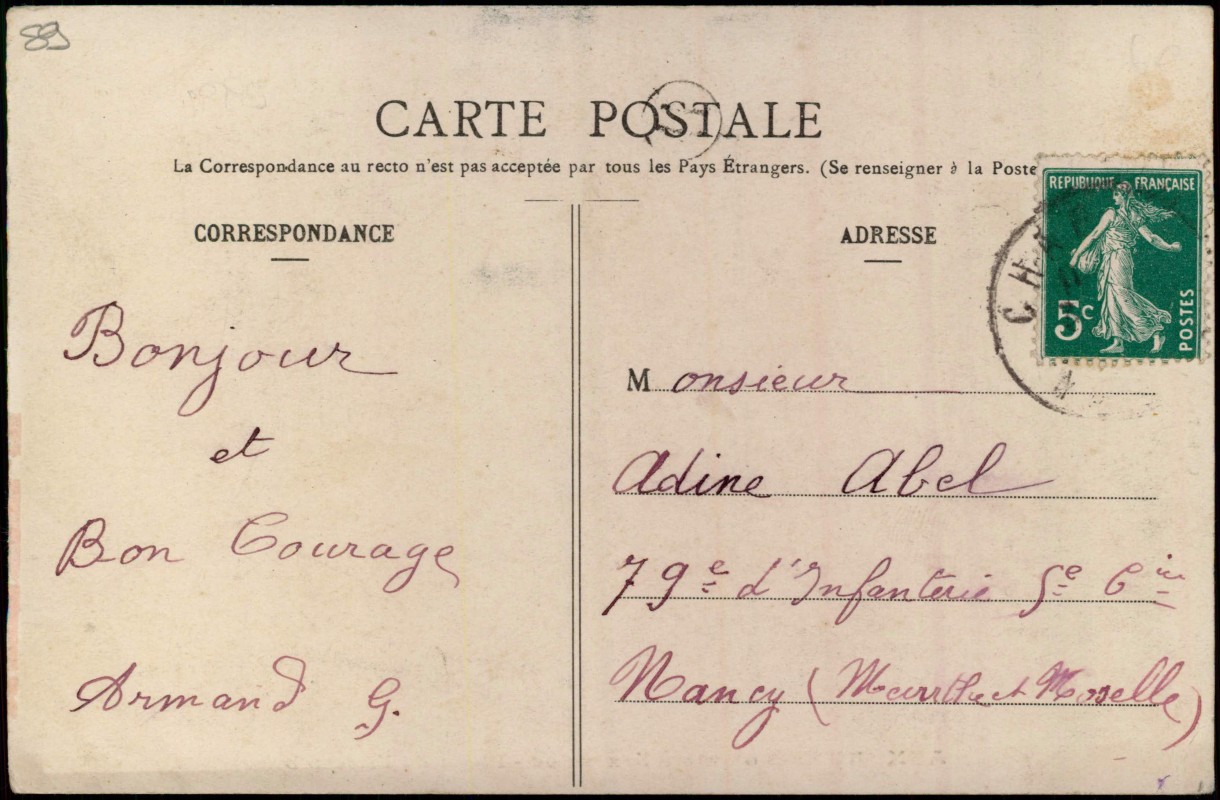 89
CARTE POSTALE
La Correspondance au recto n'est pas acceptée par tous les Pays Étrangers. (Se renseigner à la Poste
CORRESPONDANCE
ADRESSE
REPUBLIQUE FRANÇAISE
5c
POSTES
Bonjour
et
Bon Courage
Armand G.
Monsieur
Adine Abel
79e d'Infanterie 5e Cie
Nancy (Meurthe et Moselle)